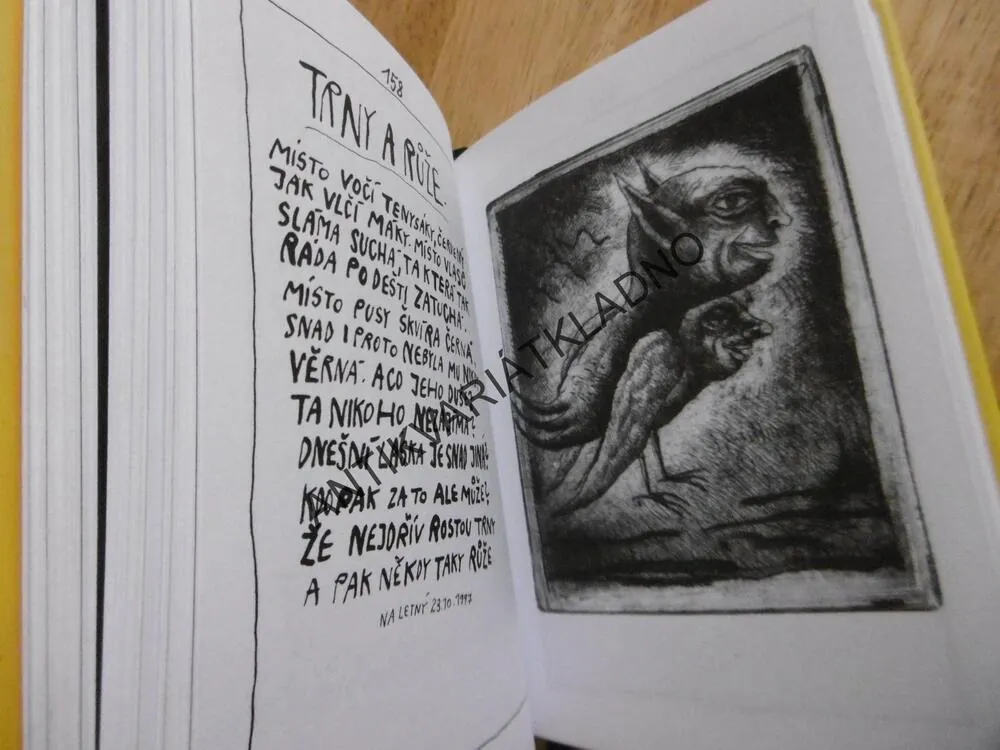 158
TRNY A RŮŽE.
MÍSTO VOČÍ TENYSÁKY, ČERVENÝ
JAK VLČÍ MÁKY. MÍSTO VLASŮ
SLÁMA SUCHÁ, TA KTERÁ TAK
RÁDA PO DEŠTI ZATUCHÁ.
MÍSTO PUSY ŠKVÍRA ČERNÁ,
SNAD I PROTO NEBYLA MU NIKDY
VĚRNÁ. A CO JEHO DUŠE?
TA NIKOHO NEZAJÍMÁ?
DNEŠNÍ LÁSKA JE SNAD JINÁ?
KDOPAK ZA TO ALE MŮŽE?
ŽE NEJDŘÍV ROSTOU TRNY
A PAK NĚKDY TAKY RŮŽE
NA LETNÝ 23.10.1997
ANTIKVARIÁTKLADNO